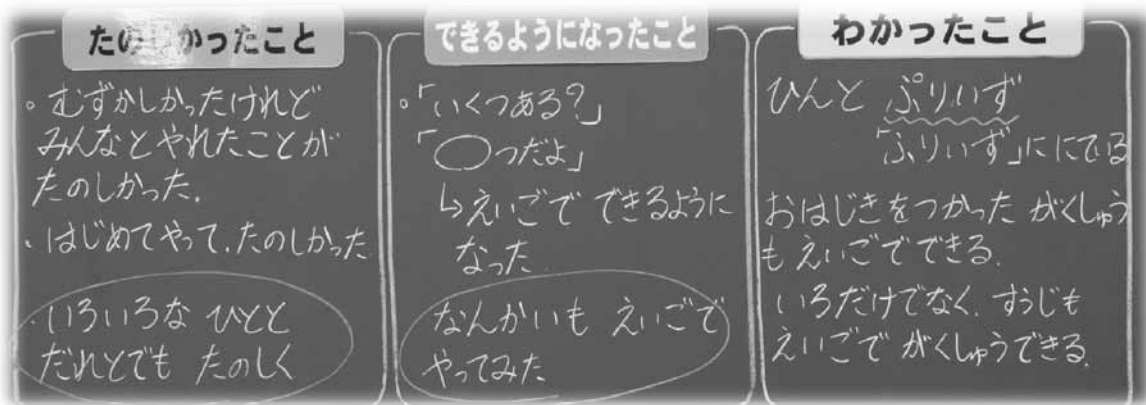 たのしかったこと
・むずかしかったけれど
みんなとやれたことが
たのしかった.
・はじめてやって.たのしかった
・いろいろな ひとと
だれとでも たのしく
できるようになったこと
・「いくつある?」
「○つだよ」
↳えいごで できるように
なった
なんかいも えいごで
やってみた
わかったこと
ひんと ぷりいず
「ふりいず」ににている
おはじきをつかった がくしゅう
も えいごでできる.
いろだけでなく. すうじも
えいごで がくしゅうできる.